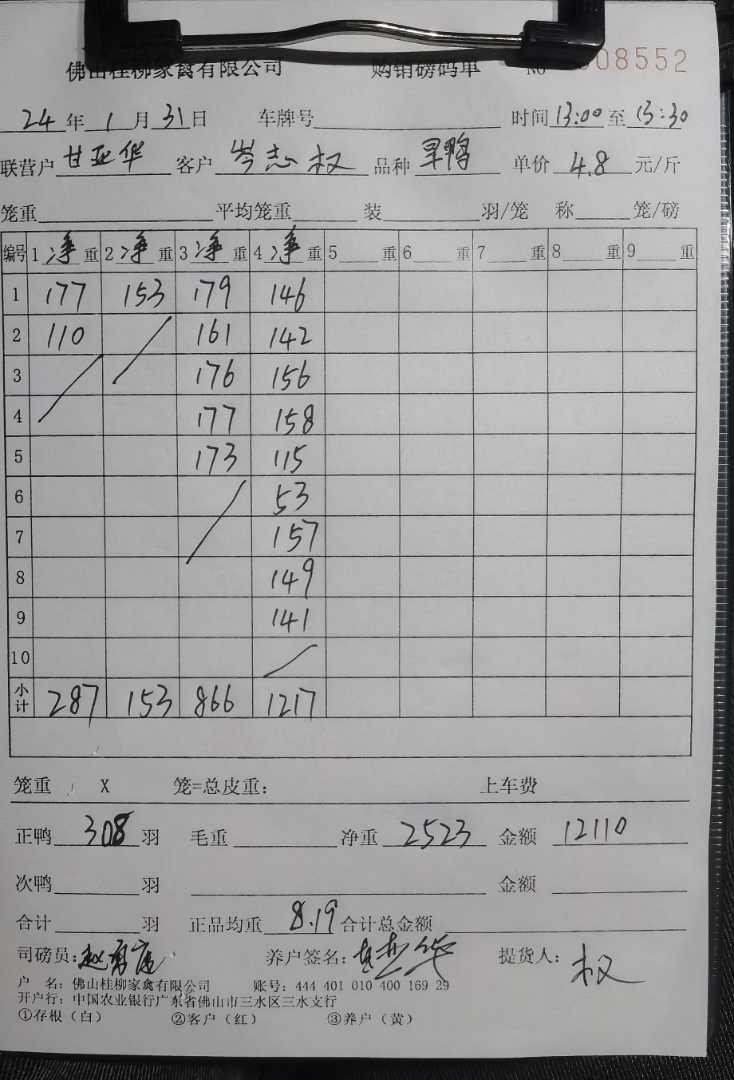 佛山桂柳家禽有限公司 购销磅码单 No 08552
24年1月31日 车牌号 时间13:00至13:30
联营户 甘亚华 客户 岑志权 品种 旱鸭 单价 4.8 元/斤
笼重 平均笼重 装 羽/笼 称 笼/磅
编号 1净重 2净重 3净重 4净重 5 重 6 重 7 重 8 重 9 重
1 177 153 179 146
2 110 161 142
3 176 156
4 177 158
5 173 115
6 53
7 157
8 149
9 141
10
小计 287 153 866 1217
笼重 X 笼=总皮重: 上车费
正鸭 308 羽 毛重 净重 2523 金额 12110
次鸭 羽 金额
合计 羽 正品均重 8.19 合计总金额
司磅员: 养户签名: 甘亚华 提货人: 权
户 名: 佛山桂柳家禽有限公司 账号: 444 401 010 400 169 29
开户行: 中国农业银行广东省佛山市三水区三水支行
①存根(白) ②客户(红) ③养户(黄)